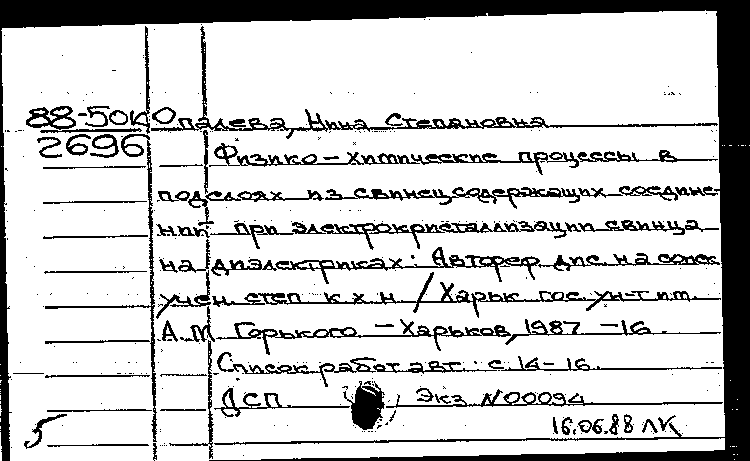 88-50к Опалева, Нина Степановна
2696 Физико-химические процессы в
подслоях из свинецсодержащих соедине-
ний при электрокристаллизации свинца
на диэлектриках: Автореф дис. на соиск
учен. степ к х н / Харьк гос. ун-т им.
А. М Горького. - Харьков, 1987 - 16.
Список работ авт.: с. 14-16.
ДСП. Экз N00094
5 16.06.88 ЛК